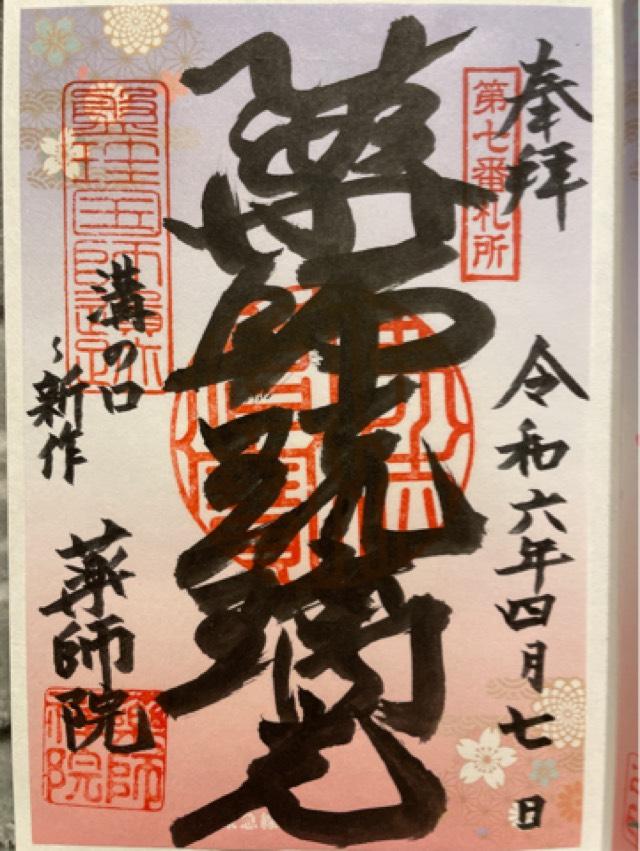 奉拝
第七番札所
令和六年四月七日
薬師琉璃光
溝の口
〜新作
薬師院